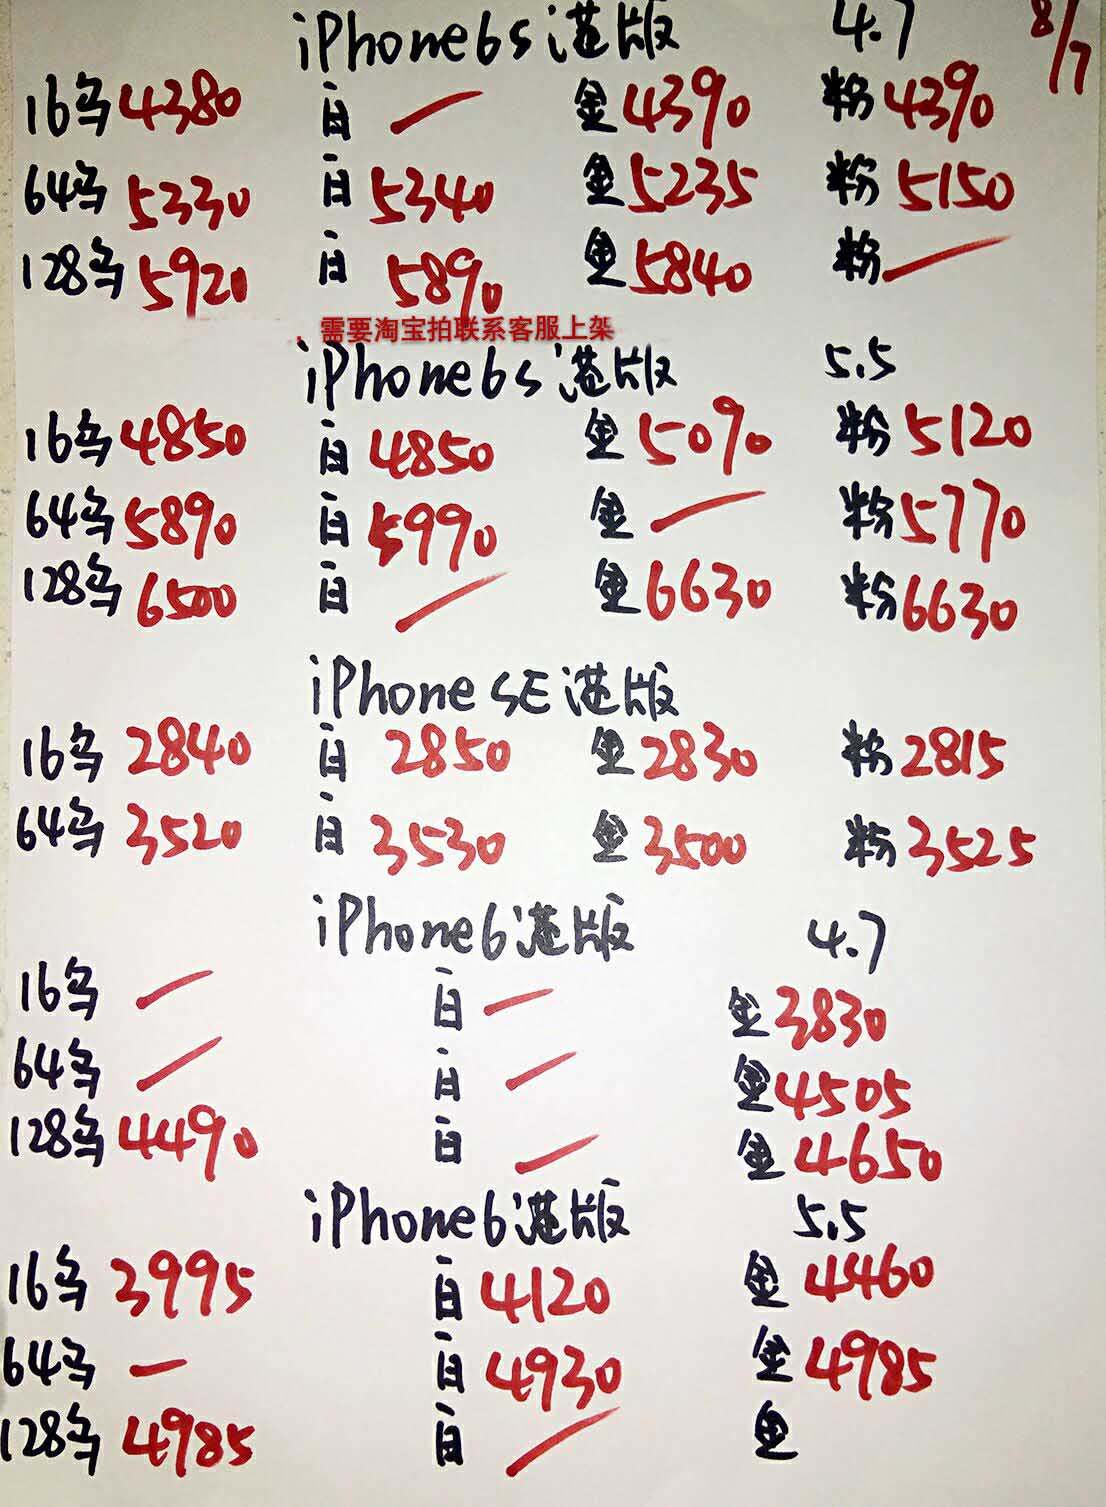 iPhone6s港版 4.7 8/7
16乌4380 白 — 金4390 粉4390
64乌5330 白5340 金5235 粉5150
128乌5920 白5890 金5840 粉—
，需要淘宝拍联系客服上架
iPhone6s港版 5.5
16乌4850 白4850 金5090 粉5120
64乌5890 白5990 金— 粉5770
128乌6500 白— 金6630 粉6630
iPhone SE港版
16乌2840 白2850 金2830 粉2815
64乌3520 白3530 金3500 粉3525
iPhone6港版 4.7
16乌— 白— 金3830
64乌— 白— 金4505
128乌4490 白— 金4650
iPhone6港版 5.5
16乌3995 白4120 金4460
64乌— 白4930 金4985
128乌4985 白— 金